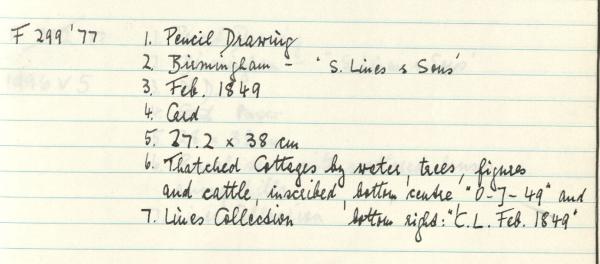 F 299 '77 1. Pencil Drawing
2. Birmingham - 'S. Lines & Sons'
3. Feb. 1849
4. Card
5. 27.2 x 38 cm
6. Thatched Cottages by water, trees, figures
and cattle, inscribed bottom centre, "O-J-49" and
7. Lines Collection bottom right: "C.L. Feb. 1849"